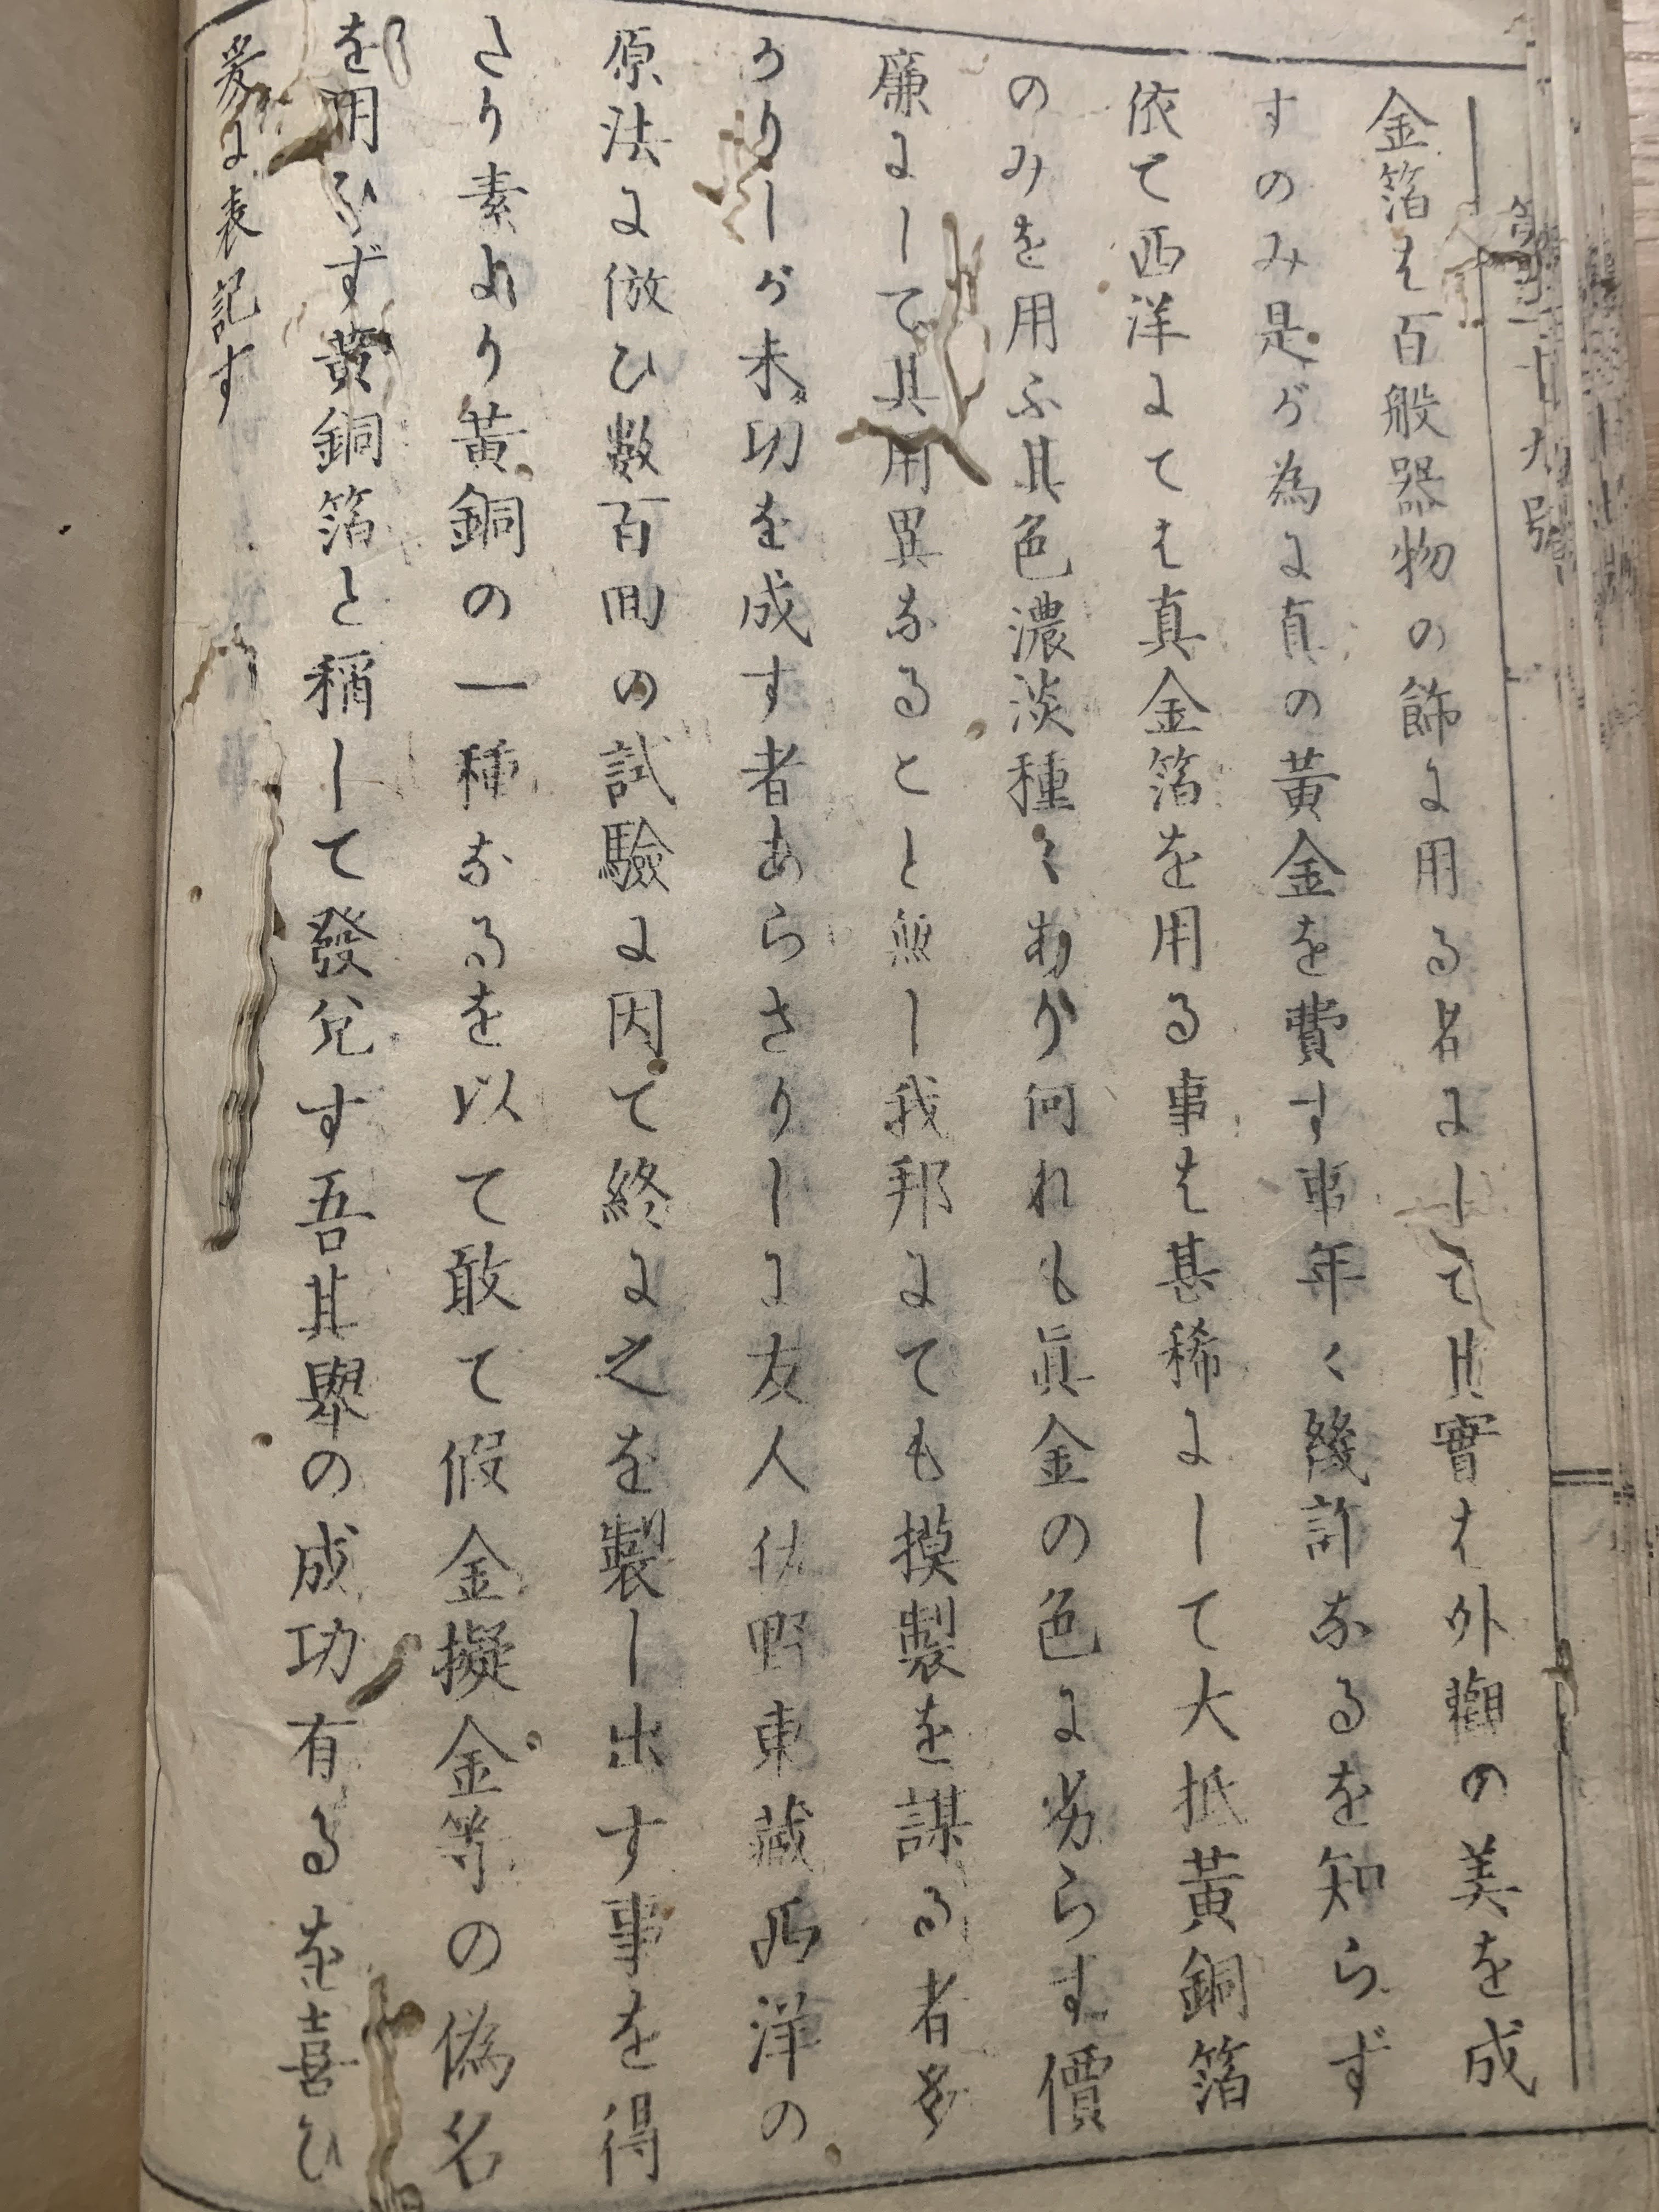 第二十九號
金箔は百般器物の飾に用る者にして其實は外觀の美を成
すのみ是が為に真の黄金を費す事年々幾許なるを知らず
依て西洋にては真金箔を用る事は甚稀にして大抵黄銅箔
のみを用ふ其色濃淡種々あり何れも眞金の色に劣らす價
廉にして其用異なること無し我邦にても摸製を謀る者多
かりしが未功を成す者あらさりしに友人佐野東藏西洋の
原法に倣ひ数百回の試驗に因て終に之を製し出す事を得
たり素より黄銅の一種なるを以て敢て假金擬金等の偽名
を用ひず黄銅箔と稱して發兌す吾其擧の成功有るを喜ひ
爰に表記す